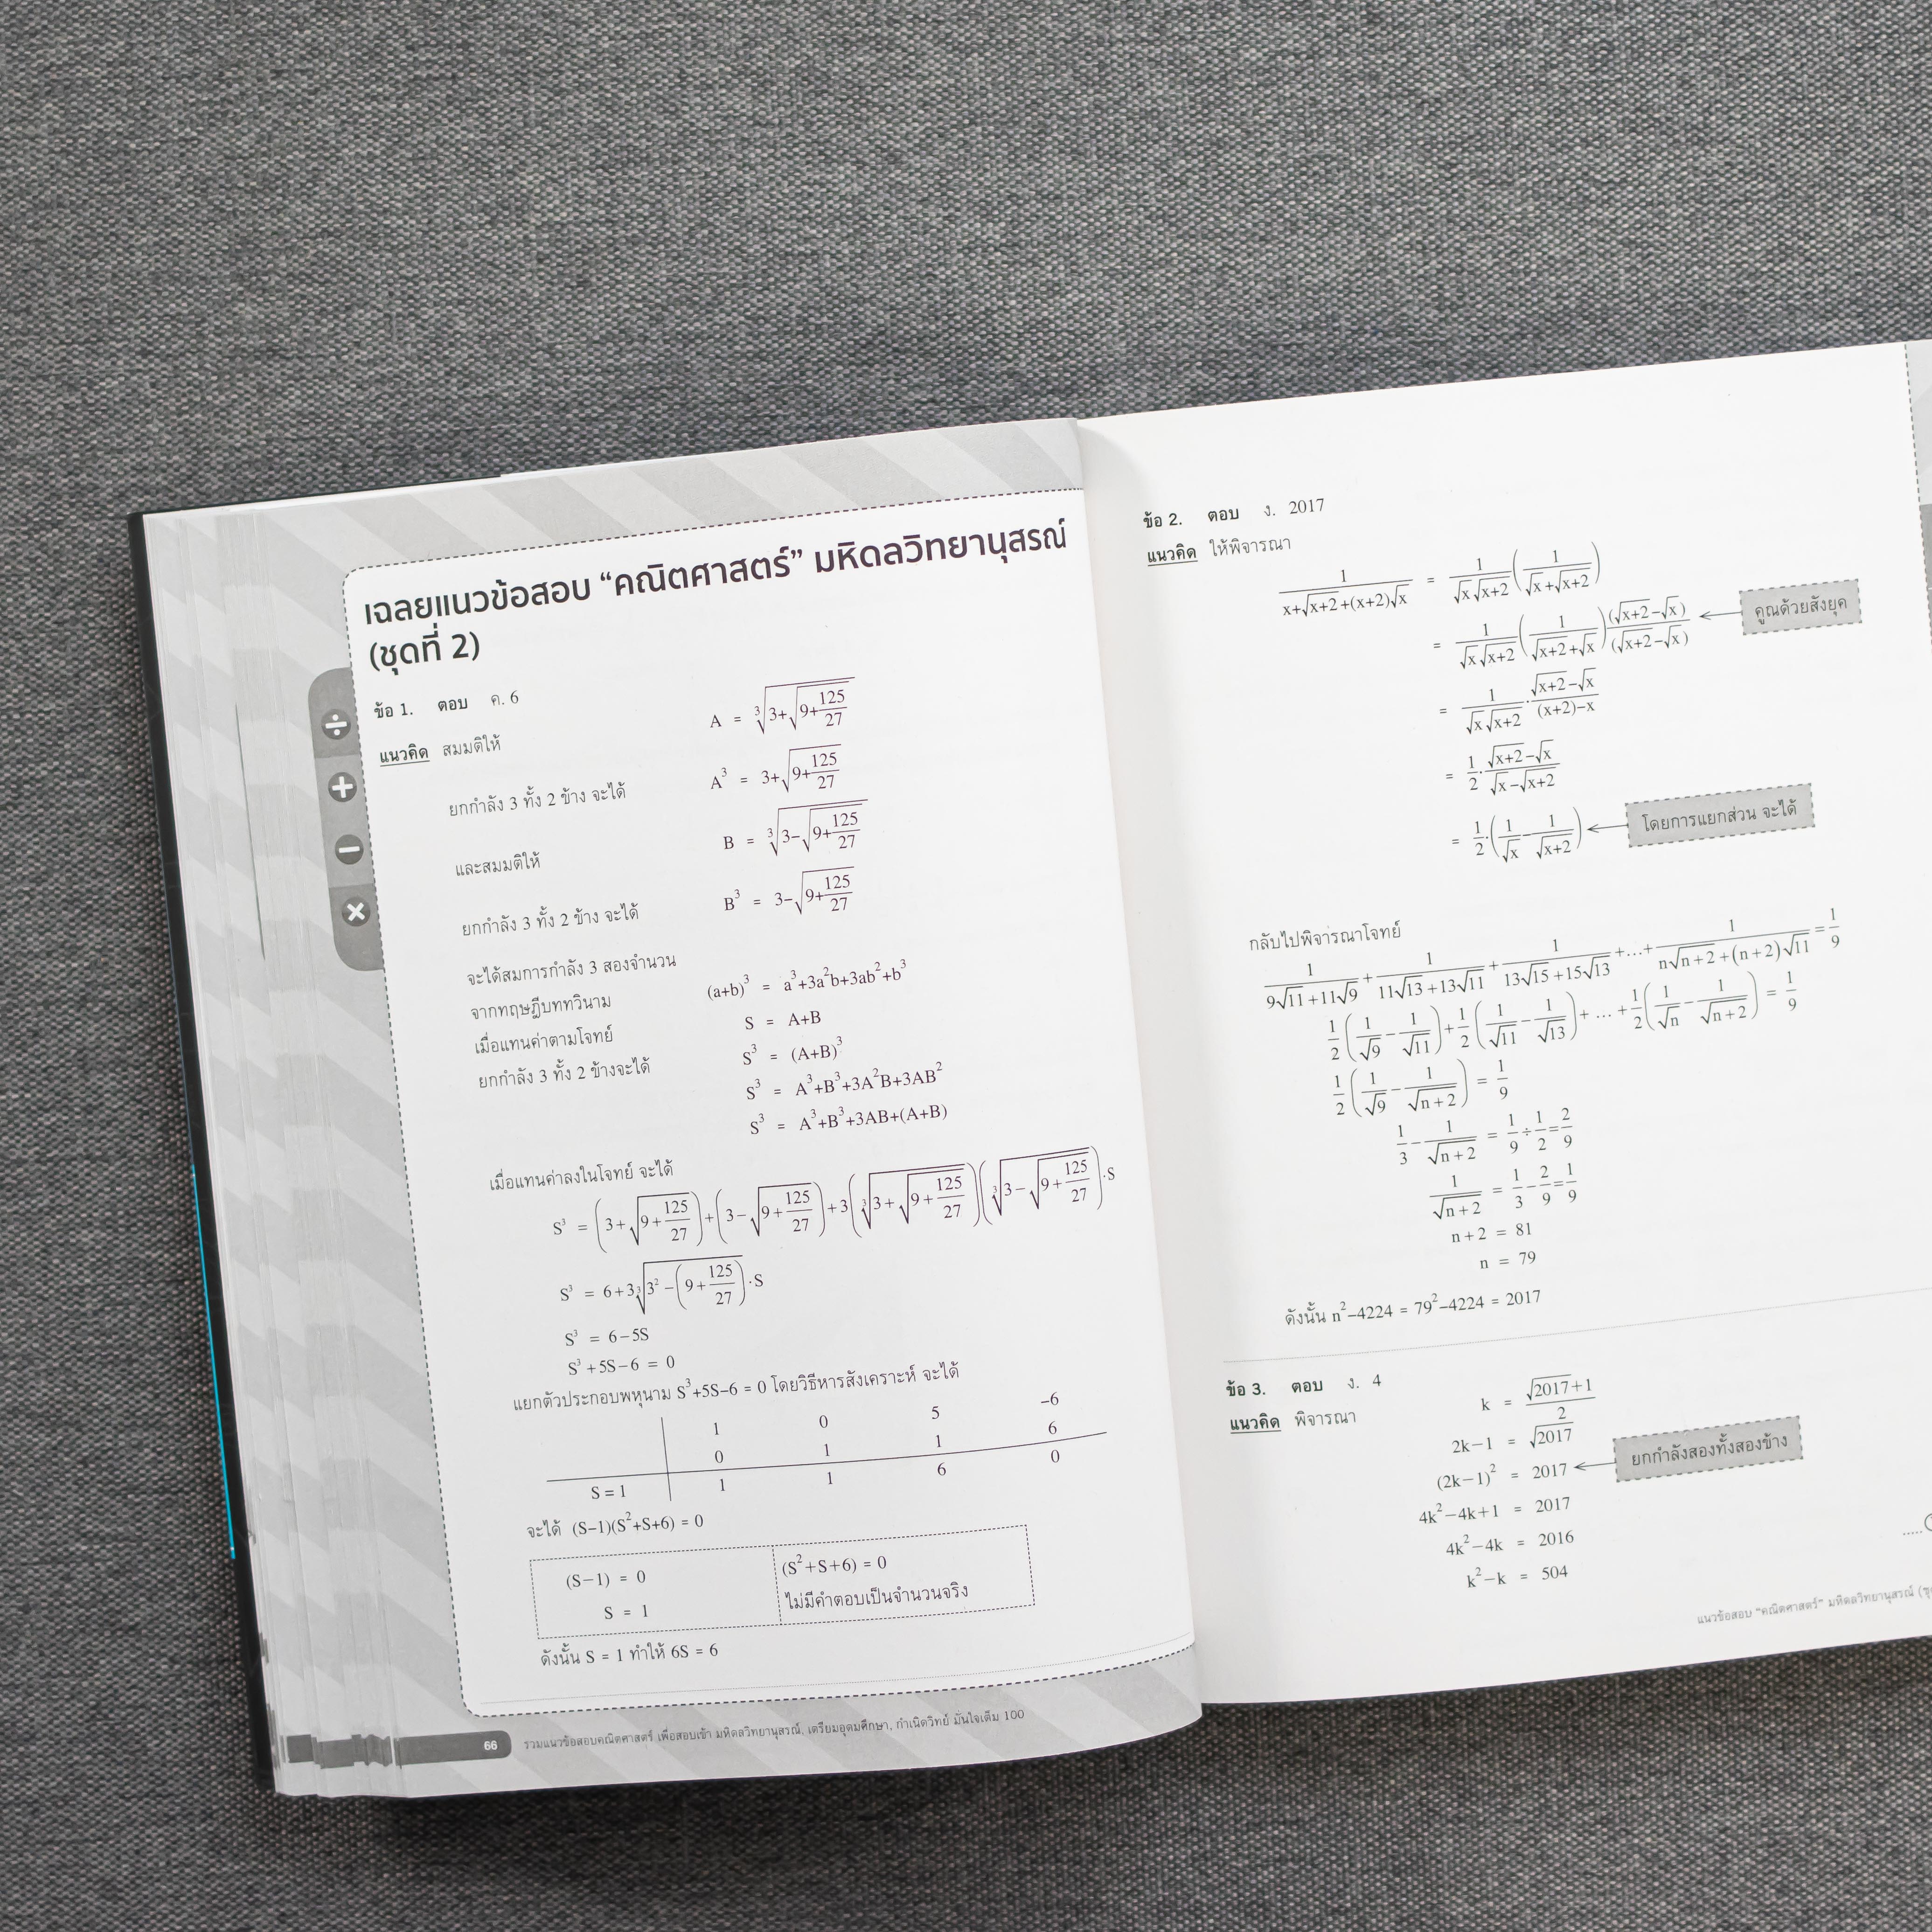 เฉลยแนวข้อสอบ “คณิตศาสตร์” มหิดลวิทยานุสรณ์
(ชุดที่ 2)
ข้อ 1. ตอบ ค. 6
แนวคิด สมมติให้ A = ∛(3+√(9+125/27))
ยกกำลัง 3 ทั้ง 2 ข้าง จะได้ A³ = 3+√(9+125/27)
และสมมติให้ B = ∛(3−√(9+125/27))
ยกกำลัง 3 ทั้ง 2 ข้าง จะได้ B³ = 3−√(9+125/27)
จะได้สมการกำลัง 3 สองจำนวน
จากทฤษฎีบททวินาม (a+b)³ = a³+3a²b+3ab²+b³
เมื่อแทนค่าตามโจทย์ S = A+B
ยกกำลัง 3 ทั้ง 2 ข้างจะได้ S³ = (A+B)³
S³ = A³+B³+3A²B+3AB²
S³ = A³+B³+3AB+(A+B)
เมื่อแทนค่าลงในโจทย์ จะได้
S³ = (3+√(9+125/27))+(3−√(9+125/27))+3(∛(3+√(9+125/27)))(∛(3−√(9+125/27)))·S
S³ = 6+3∛(3²−(9+125/27))·S
S³ = 6−5S
S³+5S−6 = 0
แยกตัวประกอบพหุนาม S³+5S−6 = 0 โดยวิธีหารสังเคราะห์ จะได้
1 0 5 −6
0 1 1 6
S = 1 1 1 6 0
จะได้ (S−1)(S²+S+6) = 0
(S−1) = 0 (S²+S+6) = 0
S = 1 ไม่มีคำตอบเป็นจำนวนจริง
ดังนั้น S = 1 ทำให้ 6S = 6
66 รวมแนวข้อสอบคณิตศาสตร์ เพื่อสอบเข้า มหิดลวิทยานุสรณ์, เตรียมอุดมศึกษา, กำเนิดวิทย์ มั่นใจเต็ม 100
ข้อ 2. ตอบ ง. 2017
แนวคิด ให้พิจารณา
1/(x+√(x+2)+(x+2)√x) = 1/(√x√(x+2))(1/(√x+√(x+2)))
= 1/(√x√(x+2))(1/(√(x+2)+√x))(√(x+2)−√x)/(√(x+2)−√x) คูณด้วยสังยุค
= 1/(√x√(x+2))·(√(x+2)−√x)/((x+2)−x)
= 1/2·(√(x+2)−√x)/(√x−√(x+2))
= 1/2·(1/√x−1/√(x+2)) โดยการแยกส่วน จะได้
กลับไปพิจารณาโจทย์
1/(9√11+11√9)+1/(11√13+13√11)+1/(13√15+15√13)+...+1/(n√(n+2)+(n+2)√11)=1/9
1/2(1/√9−1/√11)+1/2(1/√11−1/√13)+ ... +1/2(1/√n−1/√(n+2)) = 1/9
1/2(1/√9−1/√(n+2)) = 1/9
1/3−1/√(n+2) = 1/9÷1/2=2/9
1/√(n+2) = 1/3−2/9=1/9
n+2 = 81
n = 79
ดังนั้น n²−4224 = 79²−4224 = 2017
ข้อ 3. ตอบ ง. 4
แนวคิด พิจารณา k = (√2017+1)/2
2k−1 = √2017
(2k−1)² = 2017 ยกกำลังสองทั้งสองข้าง
4k²−4k+1 = 2017
4k²−4k = 2016
k²−k = 504 .....
แนวข้อสอบ “คณิตศาสตร์” มหิดลวิทยานุสรณ์